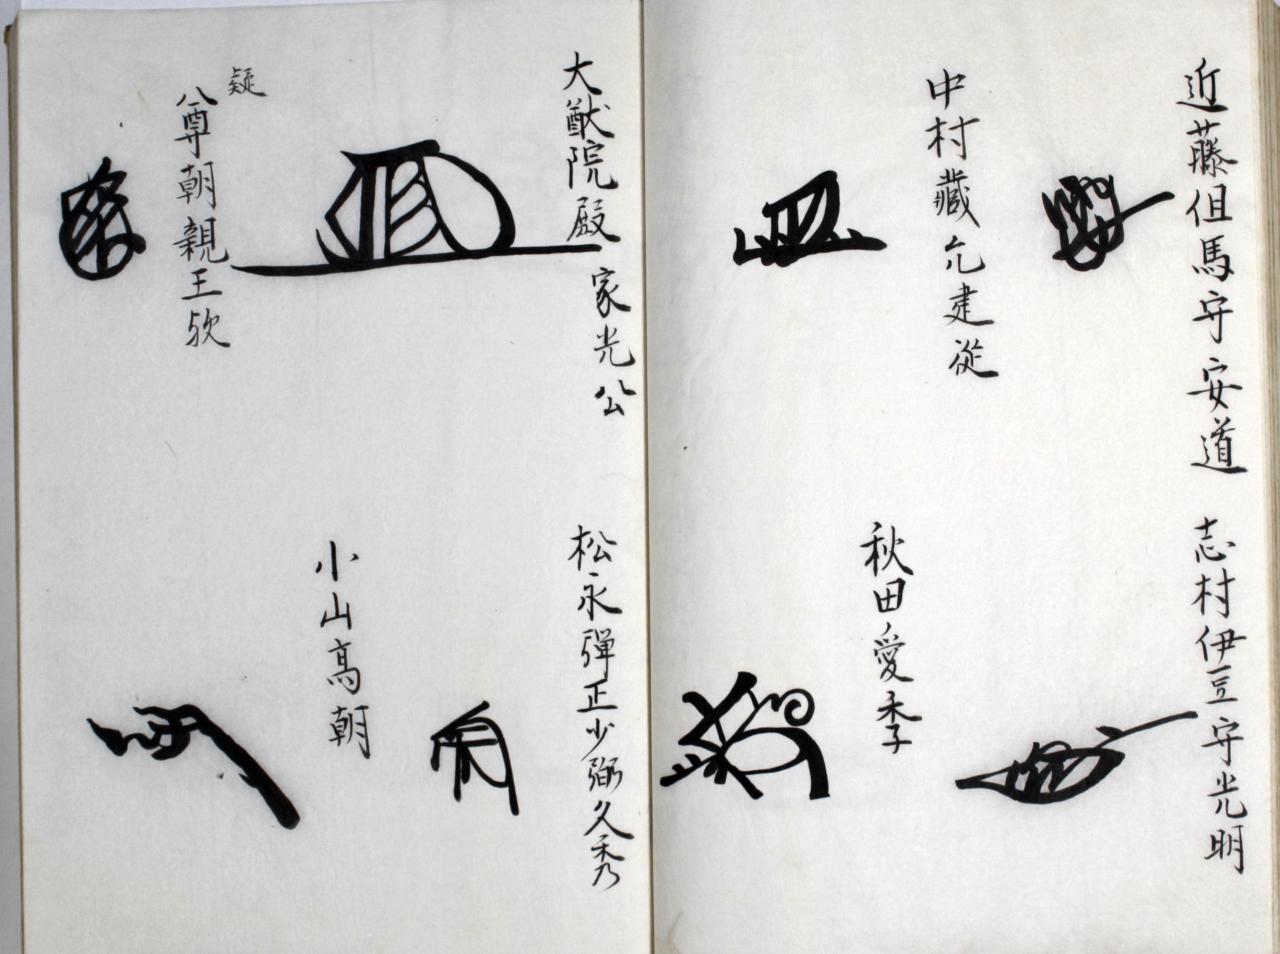 近藤伹馬守安道
志村伊豆守光明
中村藏允建従
秋田愛季
大猷院殿 家光公
松永弾正少弼久秀
小山高朝
疑
尊朝親王欤